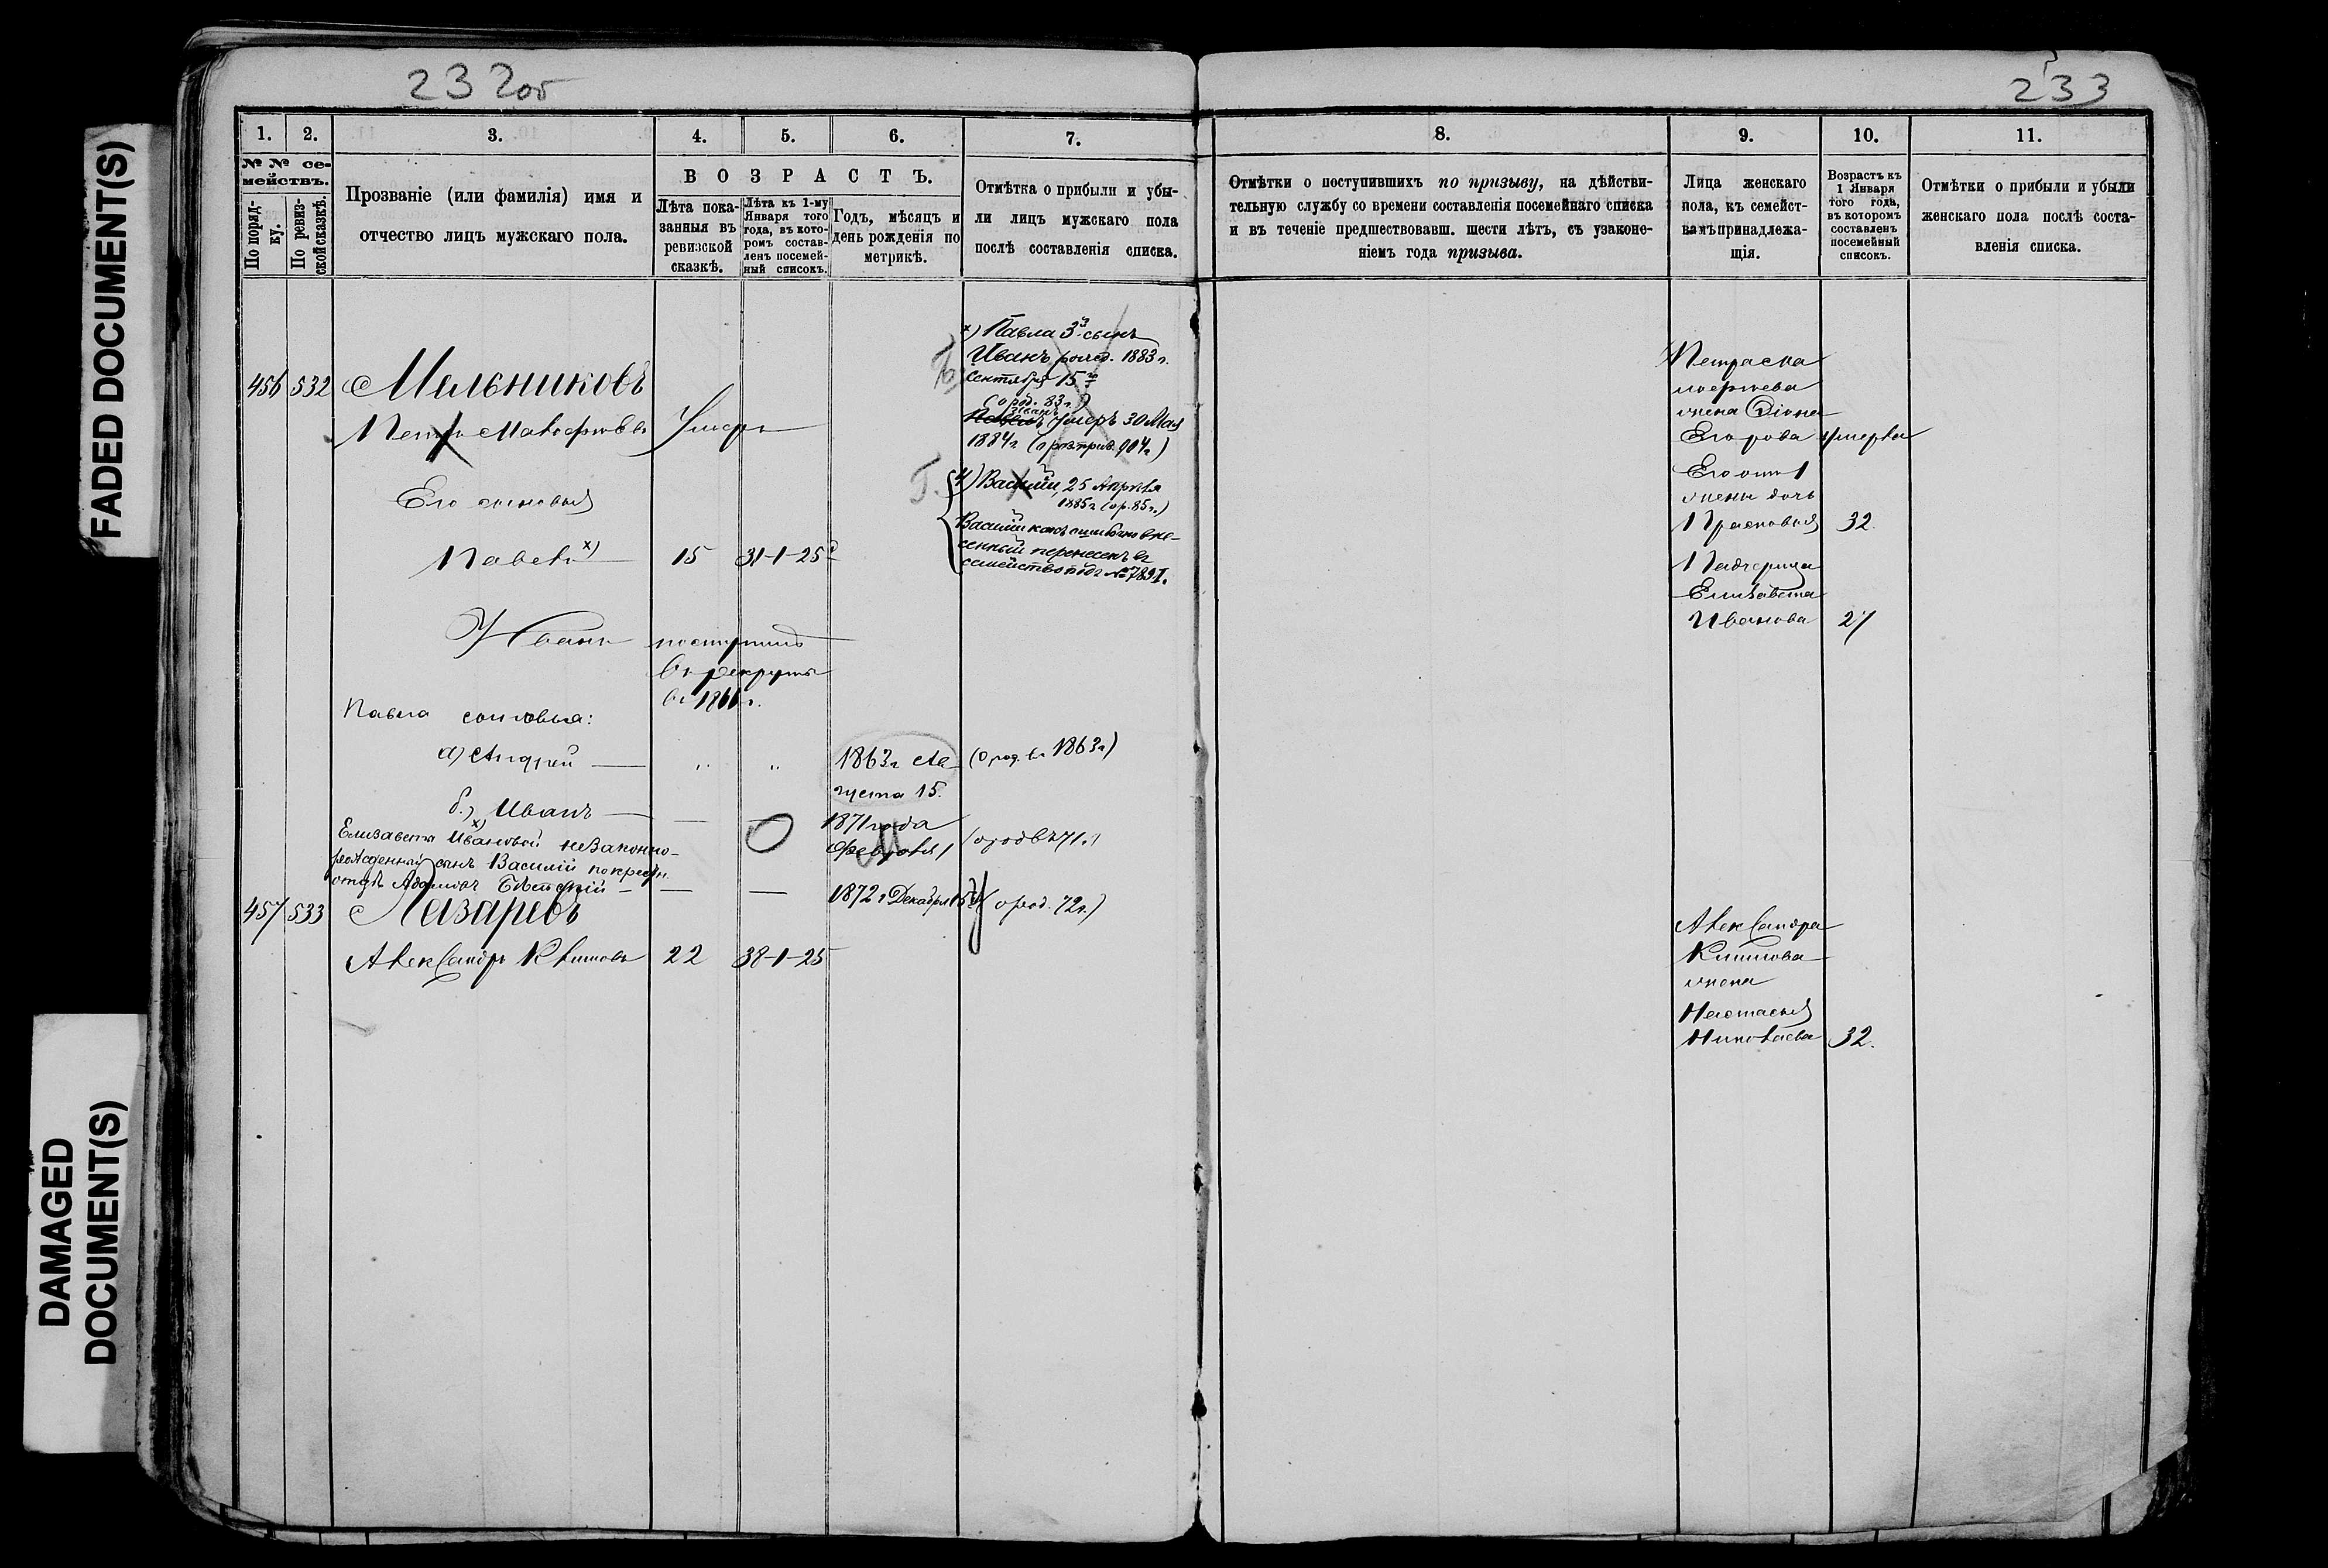 FADED DOCUMENT(S)
DAMAGED
DOCUMENT(S)
232об
233
1.
2.
3.
4.
5.
6.
7.
8.
9.
10.
11.
№ № се-
мействъ.
По поряд-
ку.
По ревиз-
ской сказкѣ.
Прозваніе (или фамилія) имя и
отчество лицъ мужскаго пола.
ВОЗРАСТЪ.
Лѣта пока-
занныя въ
ревизской
сказкѣ.
Лѣта къ 1-му
Января того
года, въ кото-
ромъ состав-
ленъ посемей-
ный списокъ.
Годъ, мѣсяцъ и
день рожденія по
метрикѣ.
Отмѣтка о прибыли и убы-
ли лицъ мужскаго пола
послѣ составленія списка.
Отмѣтки о поступившихъ по призыву, на дѣйстви-
тельную службу со времени составленія посемейнаго списка
и въ теченіе предшествовавш. шести лѣтъ, съ узаконе-
ніемъ года призыва.
Лица женскаго
пола, къ семейст-
вамъ принадлежа-
щія.
Возрастъ къ
1 Января
того года,
въ которомъ
составленъ
посемейный
списокъ.
Отмѣтки о прибыли и убыли
женскаго пола послѣ соста-
вленія списка.
456 532 Мельниковъ
Петръ Умеръ
Его сыновья
Павелъ х) 15 31-1-25
Иванъ поступилъ
въ рекруты
въ 1866 г.
Павла сыновья:
а) Андрей — „ „ 1863 г. Ав-
густа 15. (О род. въ 1863 г.)
б.) Иванъ — — — 1871 года
Февраля 1 (о род въ 71 г.)
Елизаветы Ивановой х) незаконно-
рожденный сынъ Василій по крестн.
отцѣ — — 1872 г Декабря (о род. 72 г.)
х) Павла 3й сынъ
Иванъ рожд. 1883 г.
Сентября 15го
(о род. 83 г.)
Иванъ
Павелъ умеръ 30 Мая
1884 г.
Г.
х) Василій, 25 Апрѣля
1885 г (о р. 85 г.)
Василій какъ ошибочно вне-
сенный перенесенъ въ
семейство подъ №
457 533 Лазаревъ
Александръ Климовъ 22 38-1-25
Петра
жена
Егорова умерла
Его отъ 1
жены дочь
Прасковья 32.
Падчерица
Елизавета
Иванова 27
Александра
Климова
жена
Настасья
Николаева 32.